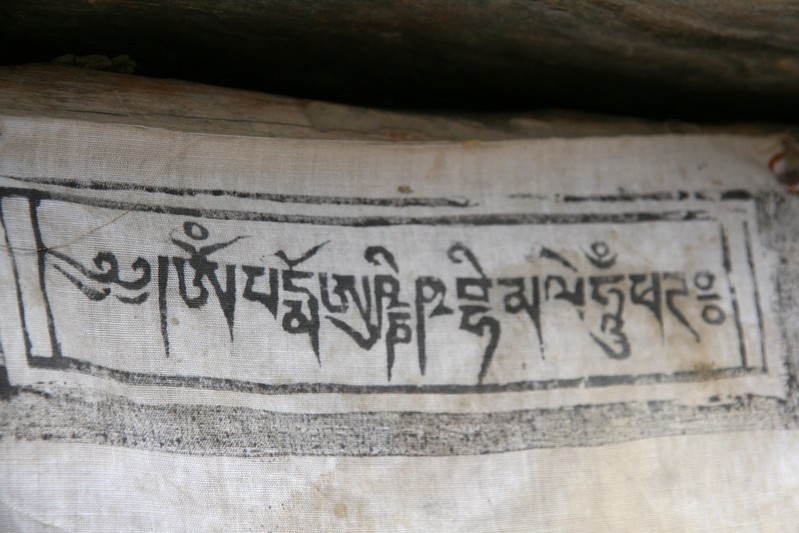 ༄༅། ཨོཾ་པདྨོ་ཨུཥྞི་ཥ་བྷི་མ་ལེ་ཧཱུྃ་ཕཊ༔